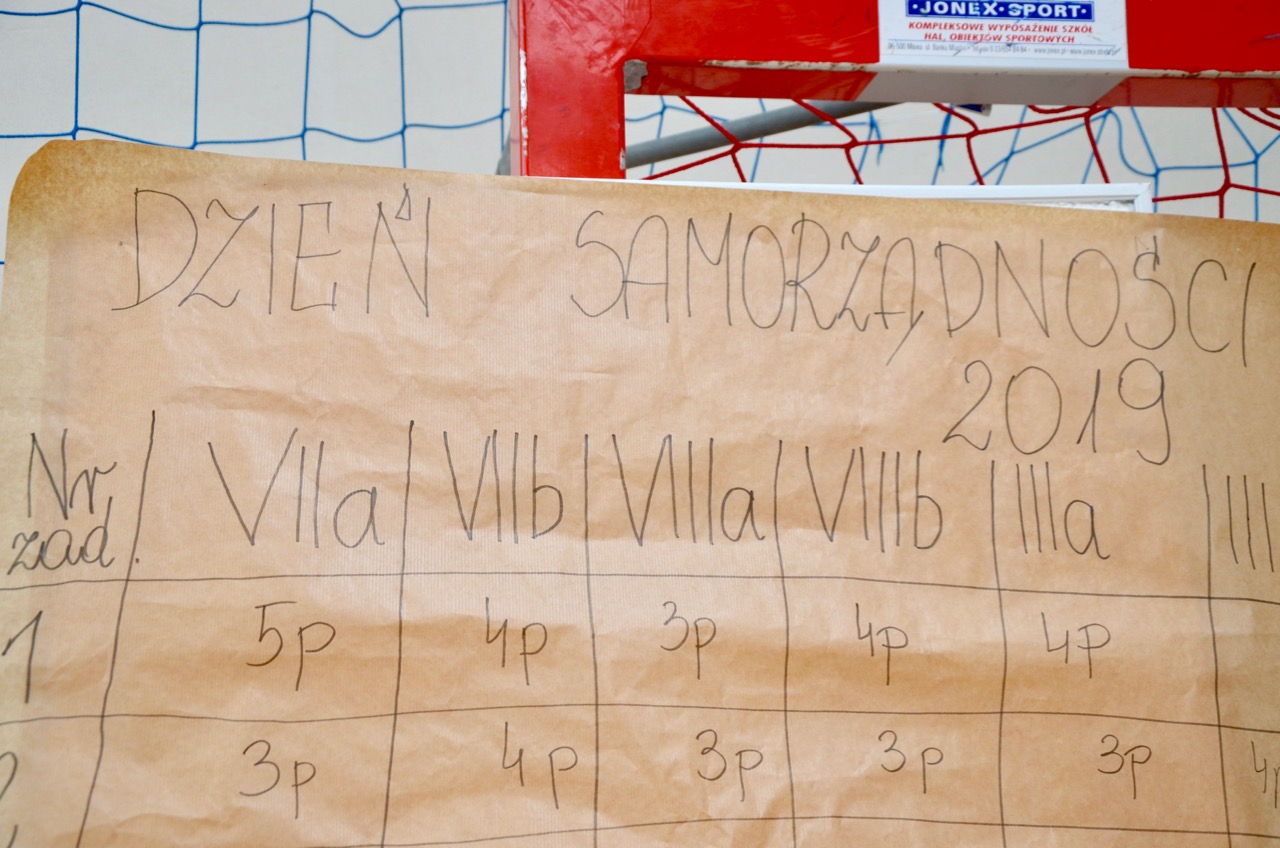 ·JONEX·SPORT·
KOMPLEKSOWE WYPOSAŻENIE SZKÓŁ
HAL, OBIEKTÓW SPORTOWYCH
DZIEŃ SAMORZĄDNOŚCI
2019
Nr zad. VIIa VIIb VIIIa VIIIb IIIa III
1 5p 4p 3p 4p 4p
2 3p 4p 3p 3p 3p 4p